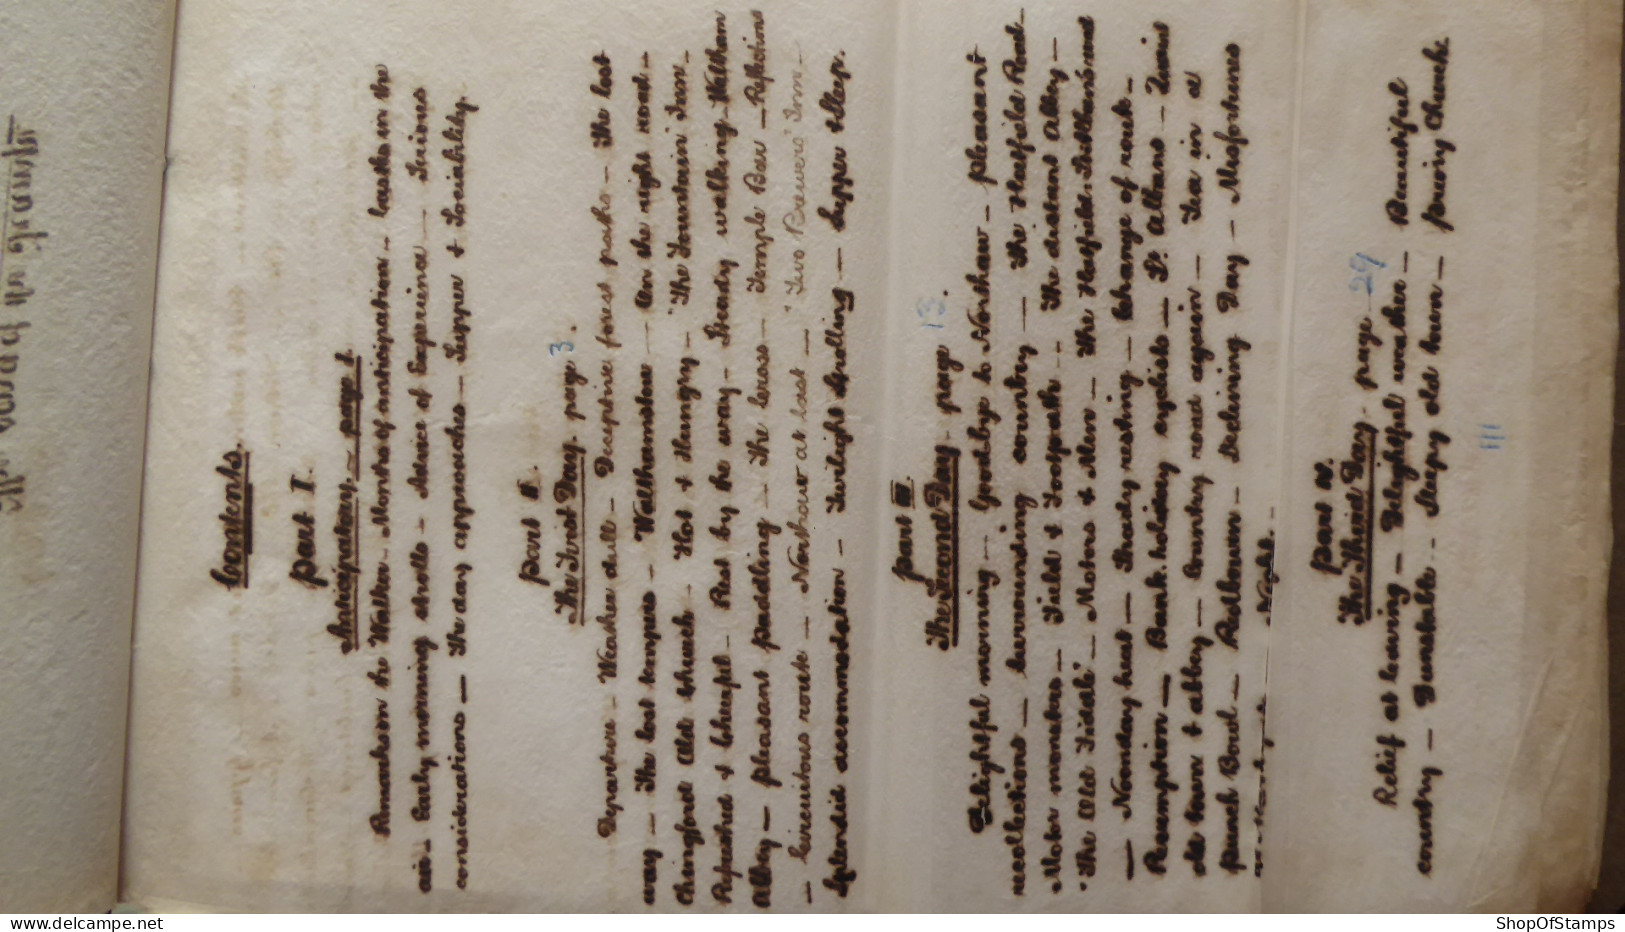 Contents.
Part I.
Anticipation. — page 1.
to Walker — Months of anticipation — in the
air — Early morning strolls — Advice of Experience — Various
considerations — The day approaches — Supper & Sociability.
part II.
The First Day — page 3.
Departure — Weather dull — Deceptive forest paths — The lost
way — The lost tempers — Walthamstow — On the right road —
Chingford Old Church — Hot & Hungry — "The Fountain" Inn —
Refreshed & Cheerful — Rest by the way — Steady walking — Waltham
Abbey — pleasant paddling — The Cross — Temple Bar — Reflections
— Circuitous route — Northaw at last — "Two Brewers" Inn —
Splendid accommodation — Twilight Strolling — Supper & Sleep.
part III.
The Second Day — page 13.
Delightful morning — Goodbye to Northaw — pleasant
recollections — Surrounding country — The Hatfield Road —
Motor monsters — Field & Footpath — The distant Abbey —
"The Old Fiddle" — Motors & Men — The Hatfield & St Albans road
— Noonday heat — Shady resting — Change of route —
Resumption — Bank holiday cyclists — St. Albans —
old town & abbey — Country road again — Tea in a
punch Bowl — Redbourn — Declining Day — Misfortunes
Night —
part IV.
The Third Day — page 29
Relief at leaving — Delightful weather — Beautiful
country — Dunstable — Sleepy old town — priory Church
III
ShopOfStamps.com